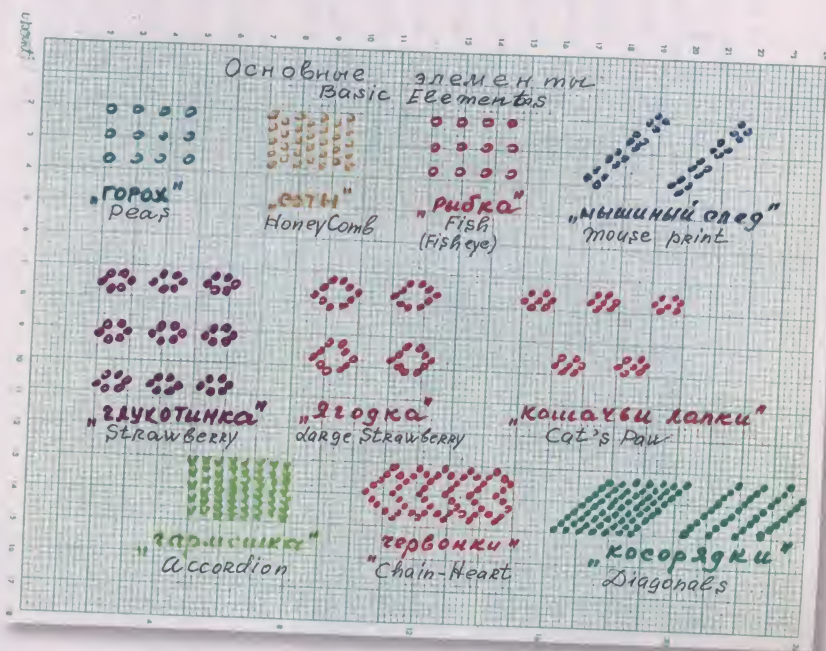 Основные элементы
Basic Elementas
"горох"
Peas
"соты"
HoneyComb
"рыбка"
Fish
(Fisheye)
"мышиный след"
mouse print
"глукотинка"
Strawberry
"ягодка"
Large Strawberry
"кошачьи лапки"
Cat's Paw
"гармошка"
Accordion
"червонки"
Chain-Heart
"косорядки"
Diagonals